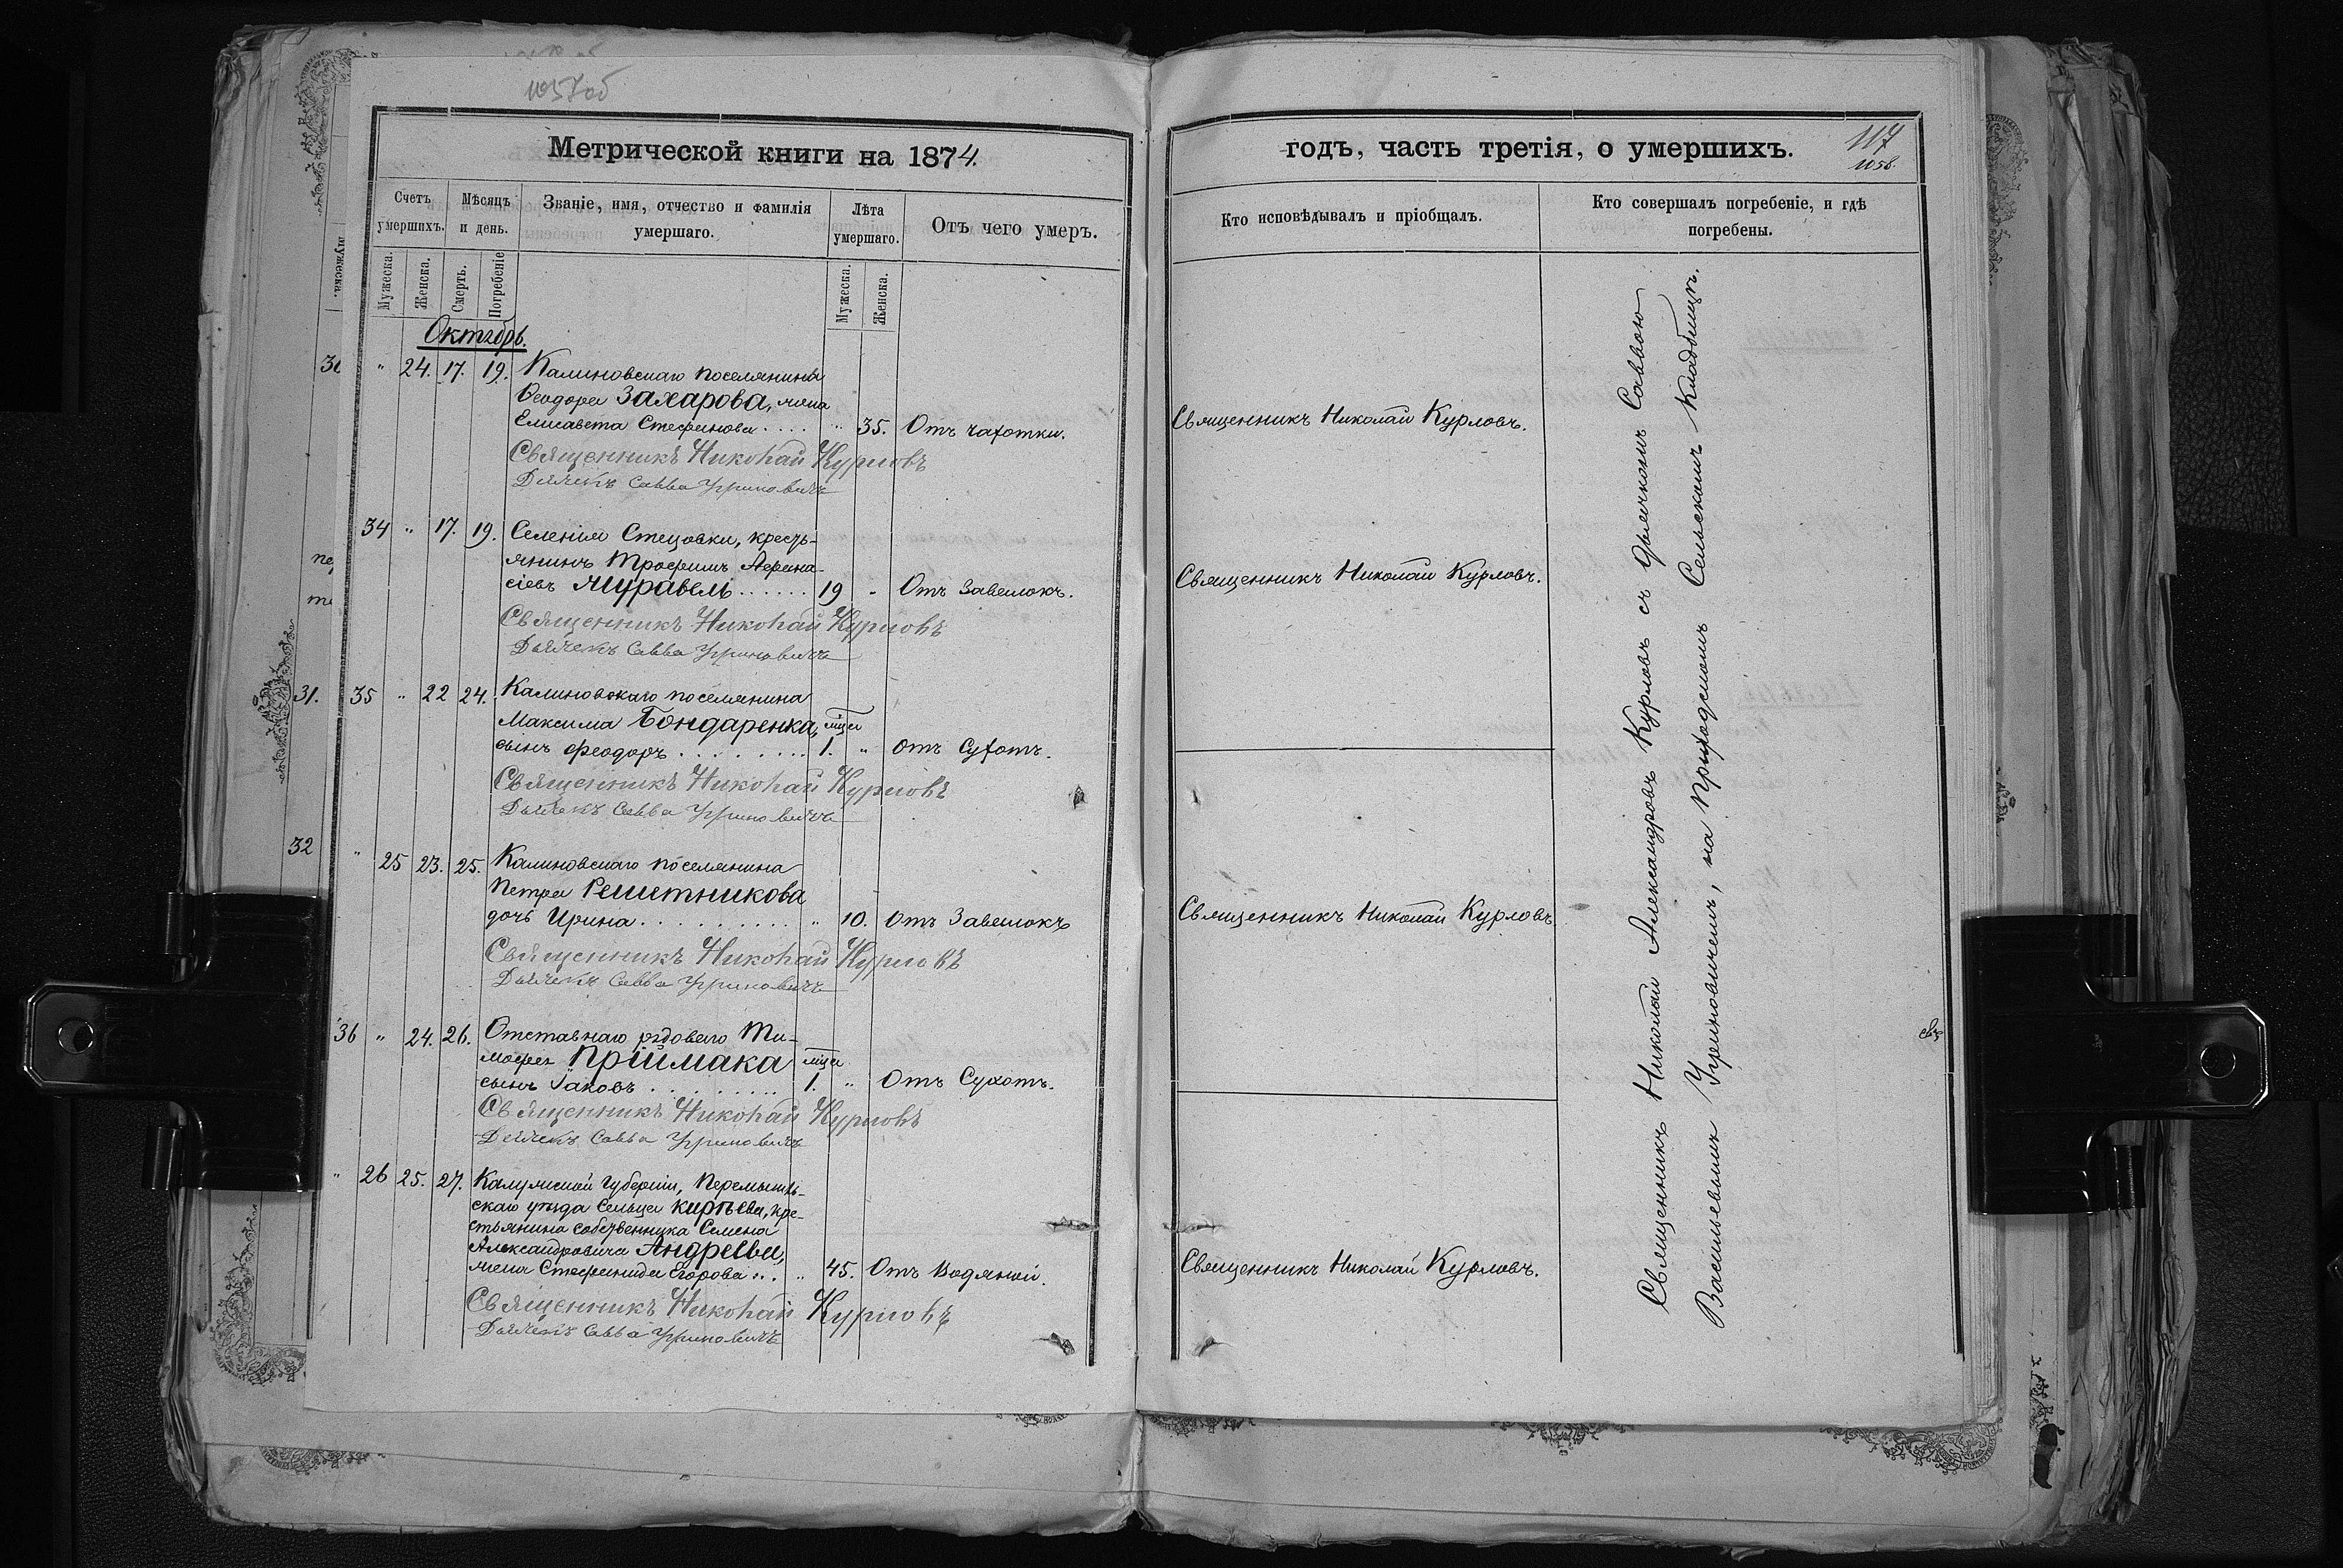 1057об
Метрической книги на 1874.
Счетъ умершихъ.
Мѣсяцъ и день.
Званіе, имя, отчество и фамилія умершаго.
Лѣта умершаго.
Отъ чего умеръ.
Мужеска.
Женска.
Смерть.
Погребеніе
Мужеска.
Женска.
Октябрь.
" 24. 17. 19. Калиновскаго поселянина
Ѳеодора Захарова, жена
Елисавета Стефанова . . . . " 35. Отъ чахотки.
Священникъ Николай Курловъ
Дьячекъ Савва Уриновичъ
34 " 17. 19. Селенія Стецовки, кресть-
янинъ Трофимъ Афана-
сіевъ Муравель . . . . . . 19 " Отъ Завалокъ.
Священникъ Николай Курловъ
Дьячекъ Савва Уриновичъ
35 " 22 24. Калиновскаго поселянина
Максима Бондаренка, мца
сынъ Феодоръ . . . . . . . . 1. " Отъ Сухотъ.
Священникъ Николай Курловъ
Дьячекъ Савва Уриновичъ
" 25 23. 25. Калиновскаго поселянина
Петра Решетникова
дочь Ирина . . . . . . . . . " 10. Отъ Завалокъ
Священникъ Николай Курловъ
Дьячекъ Савва Уриновичъ
36 " 24. 26. Отставнаго рядоваго Ти-
мофея Приймака мца
сынъ Іаковъ . . . . . . . . 1. " Отъ Сухотъ.
Священникъ Николай Курловъ
Дьячекъ Савва Уриновичъ
" 26 25. 27. Калужской Губерніи, Перемышль-
скаго уѣзда Сельца Кирѣева, кре-
стьянина собственника Семена
Александровича Андреева,
жена Стефанида Егорова . . . " 45. Отъ Водяной.
Священникъ Николай Курловъ
Дьячекъ Савва Уриновичъ
годъ, часть третія, о умершихъ.
117
1058.
Кто исповѣдывалъ и пріобщалъ.
Кто совершалъ погребеніе, и гдѣ погребены.
Священникъ Николай Курловъ.
Священникъ Николай Курловъ.
Священникъ Николай Курловъ.
Священникъ Николай Курловъ.
Священникъ Николай Александровъ Курловъ съ дьячкомъ Саввою
Васильевымъ Уриновичемъ, на Приходскомъ Сельскомъ Кладбищѣ.
31.
32